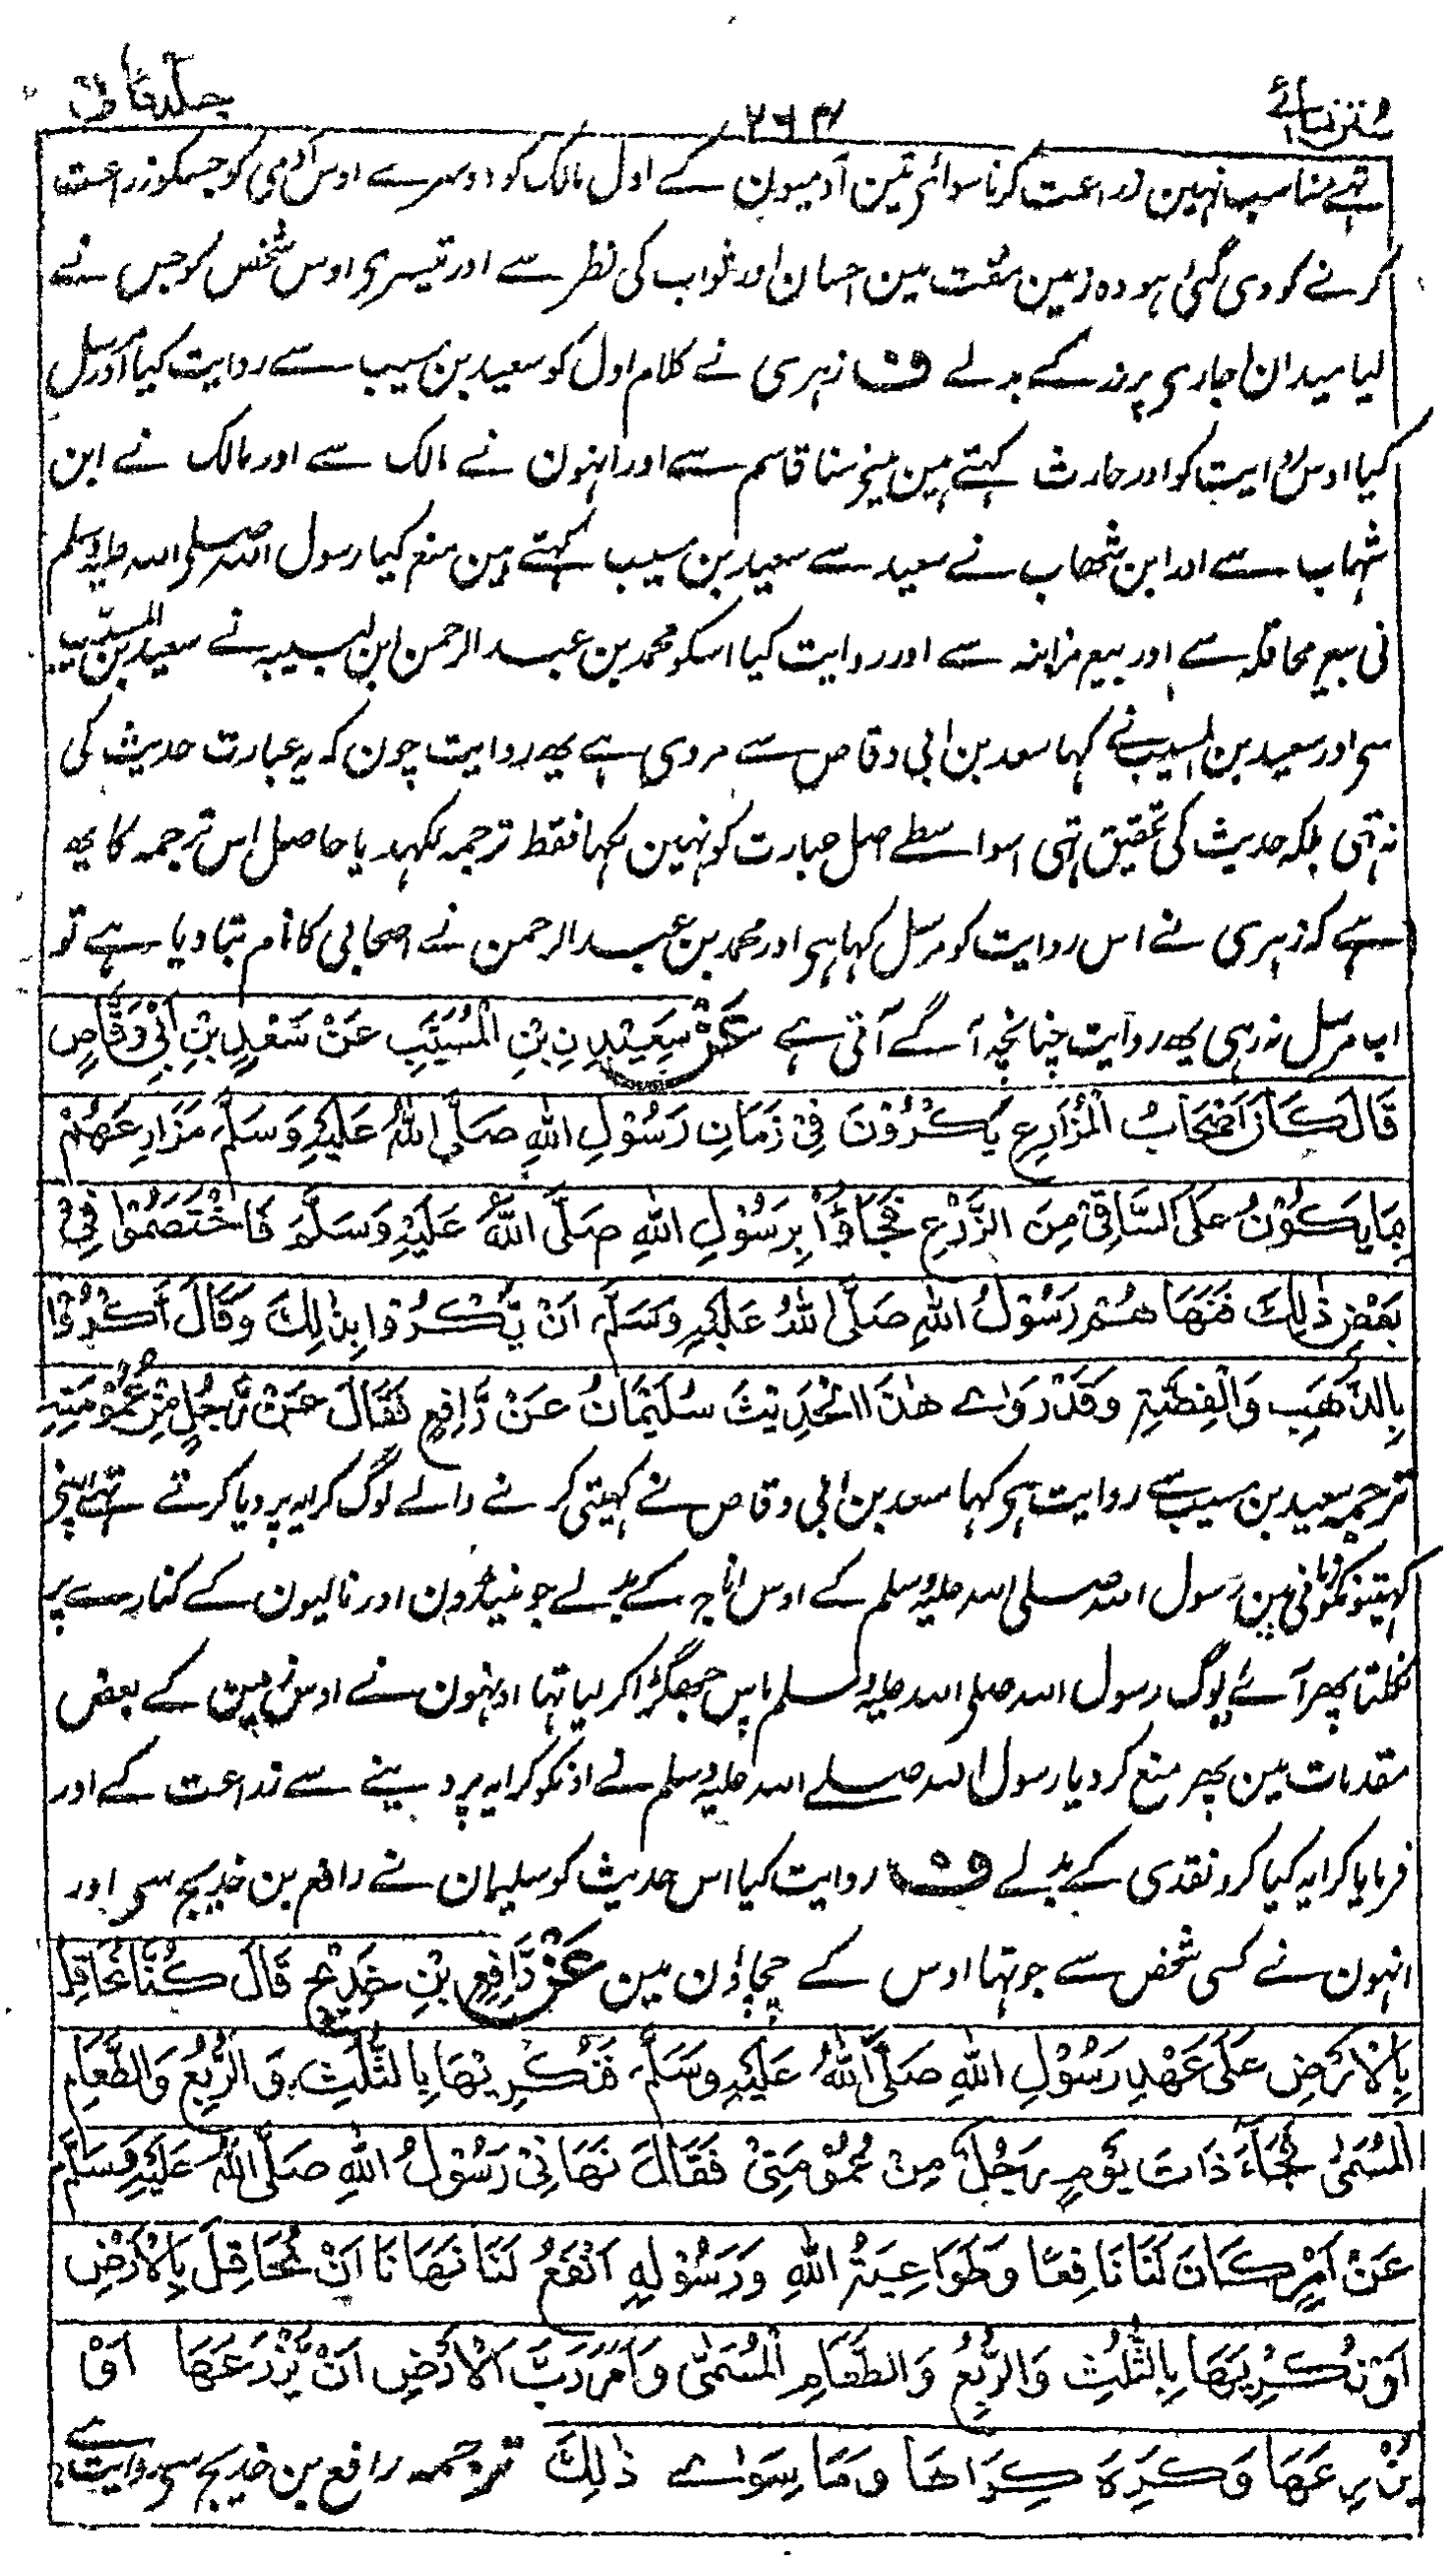 سنن نسائے ۲۶۳ جلد ثانی
تہے مناسب نہین زراعت کرنا سوائے تین آدمیون کے اول مالک کو دوسرے اوس آدمی کو جسکو زراعت
کرنے کو دی گئی ہو وہ زمین مفت مین احسان اور ثواب کی نظر سے اور تیسرے اوس شخص کو جس نے
لیا میدان جاری پر زر کے بدلے ف زہری نے کلام اول کو سعید بن مسیب سے روایت کیا اور مرسل
کیا اوس روایت کو اور حارث کہتے ہین مینے سنا قاسم سے اور انہون نے مالک سے اور مالک نے ابن
شہاب سے اور ابن شھاب نے سعید سے سعید بن مسیب کہتے ہین منع کیا رسول اللہ صلی اللہ علیہ وسلم
نی بیع محاقلہ سے اور بیع مزابنہ سے اور روایت کیا اسکو محمد بن عبد الرحمن ابن لبیبہ نے سعید بن المسیب
سی اور سعید بن المسیب نے کہا سعد بن ابی وقاص سے مروی ہے یہہ روایت چون کہ یہ عبارت حدیث کی
نہ تہی بلکہ حدیث کی تحقیق تہی اسواسطے اصل عبارت کو نہین لکہا فقط ترجمہ لکہدیا حاصل اس ترجمہ کا یہہ
ہے کہ زہری نے اس روایت کو مرسل کہا ہی اور محمد بن عبد الرحمن نے اصحابی کا نام بتا دیا ہے تو
اب مرسل نہ رہی یہہ روایت چنانچہ آگے آتی ہے عَنْ سَعِيْدِ نِ بْنِ الْمُسَيَّبِ عَنْ سَعْدِ بْنِ اَبِيْ وَقَّاصٍ
قَالَ كَانَ اَصْحَابُ الْمَزَارِعِ يَكْرُوْنَ فِيْ زَمَانِ رَسُوْلِ اللّٰهِ صَلَّى اللّٰهُ عَلَيْهِ وَسَلَّمَ مَزَارِعَهُمْ
بِمَا يَكُوْنُ عَلَى السَّاقِيْ مِنَ الزَّرْعِ فَجَاؤُا بِرَسُوْلِ اللّٰهِ صَلَّى اللّٰهُ عَلَيْهِ وَسَلَّمَ فَاخْتَصَمُوْا فِيْ
بَعْضِ ذٰلِكَ فَنَهَاهُمْ رَسُوْلُ اللّٰهِ صَلَّى اللّٰهُ عَلَيْهِ وَسَلَّمَ اَنْ يَّكْرُوْا بِذٰلِكَ وَقَالَ اَكْرُوْا
بِالذَّهَبِ وَالْفِضَّةِ وَقَدْ رَوٰے هٰذَا الْحَدِيْثَ سُلَيْمَانُ عَنْ رَّافِعٍ فَقَالَ عَنْ رَّجُلٍ مِّنْ عُمُوْمَتِهٖ
ترجمہ سعید بن مسیب سے روایت ہی کہا سعد بن ابی وقاص نے کہیتی کرنے والے لوگ کرایہ پر دیا کرتے تہے اپنی
کہیتونکو زمانی مین رسول اللہ صلی اللہ علیہ وسلم کے اوس اناج کے بدلے جو مینڈون اور نالیون کے کنارے پر
نکلتا پھر آئے لوگ رسول اللہ صلی اللہ علیہ وسلم پاس جھگڑا کر لیا تہا اونہون نے اوس زمین کے بعض
مقدمات مین پھر منع کر دیا رسول اللہ صلے اللہ علیہ وسلم نے اونکو کرایہ پر دینے سے زراعت کے اور
فرمایا کرایہ کیا کرو نقدی کے بدلے ف روایت کیا اس حدیث کو سلیمان نے رافع بن خدیج سی اور
انہون نے کسی شخص سے جو تہا اوس کے چچاؤن مین عَنْ رَّافِعِ بْنِ خَدِيْجٍ قَالَ كُنَّا نُحَاقِلُ
بِالْاَرْضِ عَلٰى عَهْدِ رَسُوْلِ اللّٰهِ صَلَّى اللّٰهُ عَلَيْهِ وَسَلَّمَ فَنُكْرِيْهَا بِالثُّلُثِ وَالرُّبُعِ وَالطَّعَامِ
الْمُسَمّٰى فَجَآءَ ذَاتَ يَوْمٍ رَجُلٌ مِنْ عُمُوْمَتِيْ فَقَالَ نَهَانِيْ رَسُوْلُ اللّٰهِ صَلَّى اللّٰهُ عَلَيْهِ وَسَلَّمَ
عَنْ اَمْرٍ كَانَ لَنَا نَافِعًا وَطَوَاعِيَةُ اللّٰهِ وَرَسُوْلِهٖ اَنْفَعُ لَنَا نَهَانَا اَنْ نُحَاقِلَ بِالْاَرْضِ
اَوْ نُكْرِيَهَا بِالثُّلُثِ وَالرُّبُعِ وَالطَّعَامِ الْمُسَمّٰى وَاَمَرَ رَبَّ الْاَرْضِ اَنْ يَّزْرَعَهَا اَوْ
يُزْرِعَهَا وَكَرِهَ كِرَاهَا وَمَا سِوٰے ذٰلِكَ ترجمہ رافع بن خدیج سی روایت ہے